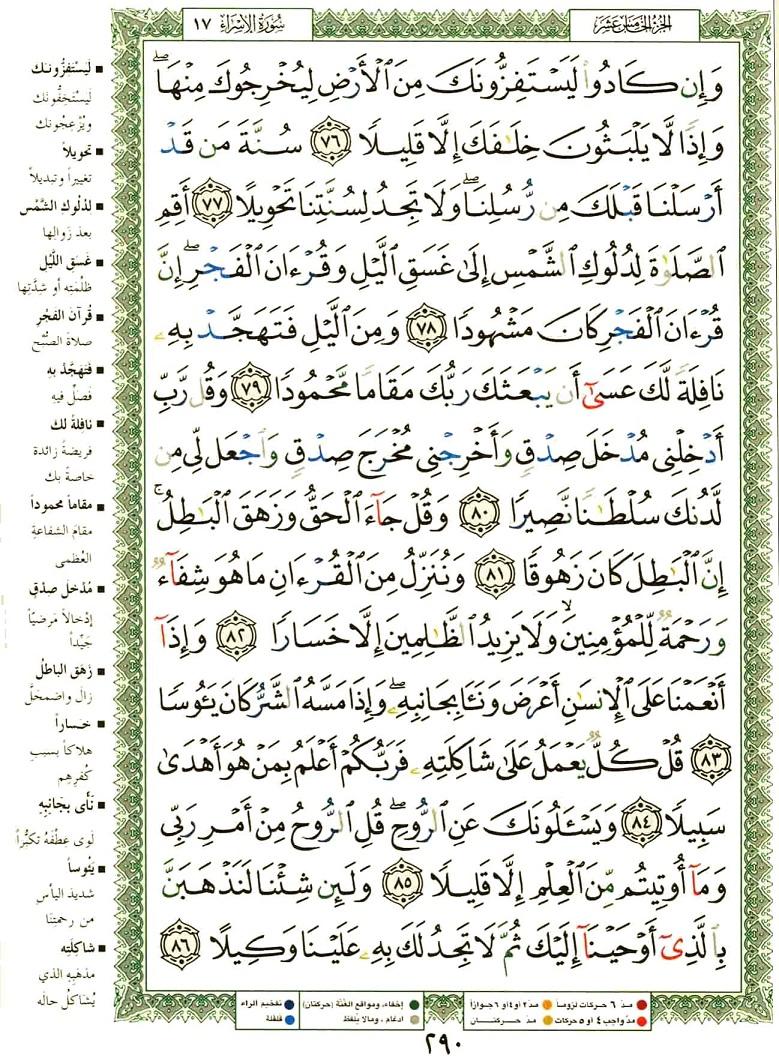 سُورَةُ الإِسْرَاءِ ١٧
الجزء الخامس عشر
وَإِن كَادُوا۟ لَيَسْتَفِزُّونَكَ مِنَ ٱلْأَرْضِ لِيُخْرِجُوكَ مِنْهَا ۖ
وَإِذًا لَّا يَلْبَثُونَ خِلَٰفَكَ إِلَّا قَلِيلًا ٧٦ سُنَّةَ مَن قَدْ
أَرْسَلْنَا قَبْلَكَ مِن رُّسُلِنَا ۖ وَلَا تَجِدُ لِسُنَّتِنَا تَحْوِيلًا ٧٧ أَقِمِ
ٱلصَّلَوٰةَ لِدُلُوكِ ٱلشَّمْسِ إِلَىٰ غَسَقِ ٱلَّيْلِ وَقُرْءَانَ ٱلْفَجْرِ ۖ إِنَّ
قُرْءَانَ ٱلْفَجْرِ كَانَ مَشْهُودًا ٧٨ وَمِنَ ٱلَّيْلِ فَتَهَجَّدْ بِهِۦ
نَافِلَةً لَّكَ عَسَىٰٓ أَن يَبْعَثَكَ رَبُّكَ مَقَامًا مَّحْمُودًا ٧٩ وَقُل رَّبِّ
أَدْخِلْنِى مُدْخَلَ صِدْقٍ وَأَخْرِجْنِى مُخْرَجَ صِدْقٍ وَٱجْعَل لِّى مِن
لَّدُنكَ سُلْطَٰنًا نَّصِيرًا ٨٠ وَقُلْ جَآءَ ٱلْحَقُّ وَزَهَقَ ٱلْبَٰطِلُ ۚ
إِنَّ ٱلْبَٰطِلَ كَانَ زَهُوقًا ٨١ وَنُنَزِّلُ مِنَ ٱلْقُرْءَانِ مَا هُوَ شِفَآءٌ
وَرَحْمَةٌ لِّلْمُؤْمِنِينَ ۙ وَلَا يَزِيدُ ٱلظَّٰلِمِينَ إِلَّا خَسَارًا ٨٢ وَإِذَآ
أَنْعَمْنَا عَلَى ٱلْإِنسَٰنِ أَعْرَضَ وَنَـَٔا بِجَانِبِهِۦ ۖ وَإِذَا مَسَّهُ ٱلشَّرُّ كَانَ يَـُٔوسًا
٨٣ قُلْ كُلٌّ يَعْمَلُ عَلَىٰ شَاكِلَتِهِۦ فَرَبُّكُمْ أَعْلَمُ بِمَنْ هُوَ أَهْدَىٰ
سَبِيلًا ٨٤ وَيَسْـَٔلُونَكَ عَنِ ٱلرُّوحِ ۖ قُلِ ٱلرُّوحُ مِنْ أَمْرِ رَبِّى
وَمَآ أُوتِيتُم مِّنَ ٱلْعِلْمِ إِلَّا قَلِيلًا ٨٥ وَلَئِن شِئْنَا لَنَذْهَبَنَّ
بِٱلَّذِىٓ أَوْحَيْنَآ إِلَيْكَ ثُمَّ لَا تَجِدُ لَكَ بِهِۦ عَلَيْنَا وَكِيلًا ٨٦
لَيَسْتَفِزُّونَكَ
لَيَسْتَخِفُّونَكَ
ويُزْعِجُونك
تحويلاً
تغييراً وتبديلاً
لدلوك الشَّمْس
بعد زوالها
غَسَقِ اللَّيْل
ظُلْمَتِه أو شِدَّتِها
قُرآنَ الفَجْر
صَلاةَ الصُّبْح
فتهجَّدْ بهِ
فَصَلِّ فيهِ
نافِلةً لك
فَريضةً زائدة
خاصةً بك
مقاماً محموداً
مقامَ الشفاعةِ
العُظمى
مُدْخَلَ صِدْقٍ
إدْخالاً مَرضيّاً
جَيِّداً
زَهَقَ الباطلُ
زالَ واضمحلَّ
خَساراً
هلاكاً بسببِ
كُفرِهِم
نَأى بجَانِبِهِ
لَوى عِطْفَهُ تكبُّراً
يَئُوساً
شديدَ اليأس
من رحمتِنا
شاكِلَتِه
مذهبهِ الذي
يُشاكلُ حالَه
مدّ ٦ حركات لزوماً
مدّ ٢ أو ٤ أو ٦ جوازاً
إخفاء، ومواقع الغُنَّة (حركتان)
تفخيم الراء
مدّ واجب ٤ أو ٥ حركات
مدّ حركتان
ادغام ، ومالا يُلفظ
قلقلة
٢٩٠